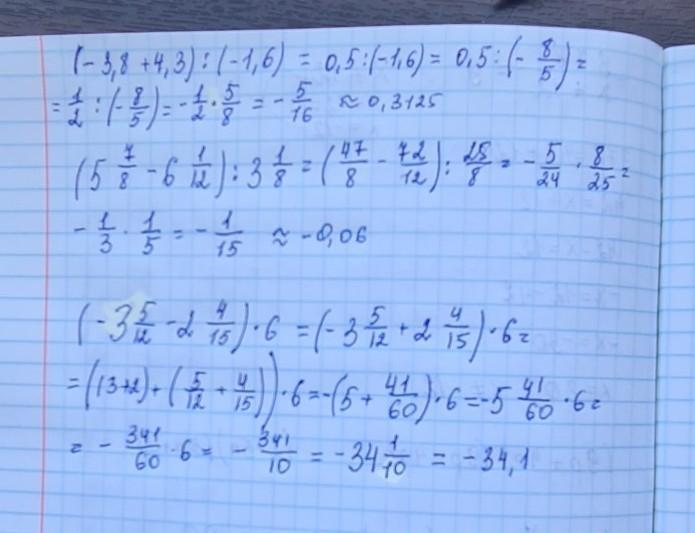 (-3,8 + 4,3) : (-1,6) = 0,5 : (-1,6) = 0,5 : (- 8/5) =
= 1/2 : (- 8/5) = - 1/2 · 5/8 = - 5/16 ≈ 0,3125
(5 7/8 - 6 1/12) : 3 1/8 = (47/8 - 72/12) : 25/8 = - 5/24 · 8/25 =
- 1/3 · 1/5 = - 1/15 ≈ -0,06
(-3 5/12 - 2 4/15) · 6 = (-3 5/12 + 2 4/15) · 6 =
= ((3+2) + (5/12 + 4/15)) · 6 = -(5 + 41/60) · 6 = -5 41/60 · 6 =
= - 341/60 · 6 = - 341/10 = -34 1/10 = -34,1